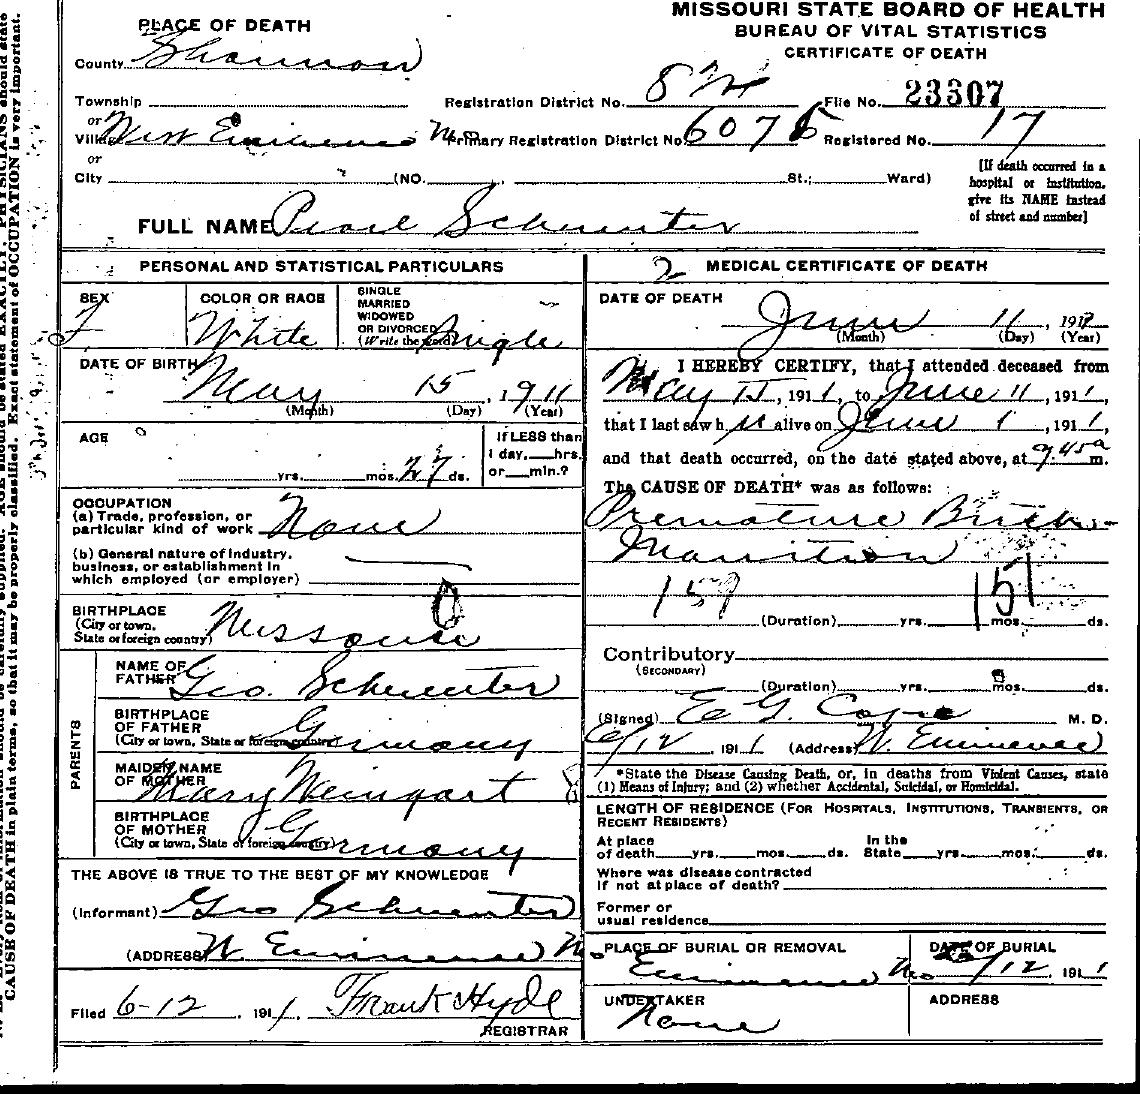 MISSOURI STATE BOARD OF HEALTH
BUREAU OF VITAL STATISTICS
CERTIFICATE OF DEATH
PLACE OF DEATH
County Shannon
Township Registration District No. File No. 23307
or
Village West Eminence Mo Primary Registration District No. 6076 Registered No. 17
or
City (NO. , St.; Ward)
[If death occurred in a hospital or institution, give its NAME instead of street and number]
FULL NAME Pearl Schwenter
PERSONAL AND STATISTICAL PARTICULARS
SEX F
COLOR OR RACE White
SINGLE MARRIED WIDOWED OR DIVORCED (Write the word) Single
DATE OF BIRTH May 15, 1911
(Month) (Day) (Year)
AGE yrs. mos. 27 ds.
If LESS than 1 day, hrs. or min.?
OCCUPATION
(a) Trade, profession, or particular kind of work None
(b) General nature of industry, business, or establishment in which employed (or employer)
BIRTHPLACE
(City or town, State or foreign country) Missouri
PARENTS
NAME OF FATHER Geo. Schwenter
BIRTHPLACE OF FATHER
(City or town, State or foreign country) Germany
MAIDEN NAME OF MOTHER Mary Weingart
BIRTHPLACE OF MOTHER
(City or town, State or foreign country) Germany
THE ABOVE IS TRUE TO THE BEST OF MY KNOWLEDGE
(Informant) Geo Schwenter
(ADDRESS) W. Eminence Mo
Filed 6-12, 1911. Frank Hyde
REGISTRAR
2 MEDICAL CERTIFICATE OF DEATH
DATE OF DEATH
June 11, 191
(Month) (Day) (Year)
I HEREBY CERTIFY, that I attended deceased from
May 15, 1911, to June 11, 1911,
that I last saw her alive on June 1, 1911,
and that death occurred, on the date stated above, at 9.45a m.
The CAUSE OF DEATH* was as follows:
Premature Birth-
159 151
(Duration) yrs. mos. ds.
Contributory
(SECONDARY)
(Duration) yrs. mos. ds.
(Signed) E G. Cope M. D.
6/12 1911 (Address) W. Eminence
*State the Disease Causing Death, or, in deaths from Violent Causes, state
(1) Means of Injury; and (2) whether Accidental, Suicidal, or Homicidal.
LENGTH OF RESIDENCE (FOR HOSPITALS, INSTITUTIONS, TRANSIENTS, OR
RECENT RESIDENTS)
At place of death yrs. mos. ds. In the State yrs. mos. ds.
Where was disease contracted
if not at place of death?
Former or
usual residence
PLACE OF BURIAL OR REMOVAL
Eminence Mo
DATE OF BURIAL
6/12 1911
UNDERTAKER
None
ADDRESS
CAUSE OF DEATH in plain terms, so that it may be properly classified. Exact statement of OCCUPATION is very important.